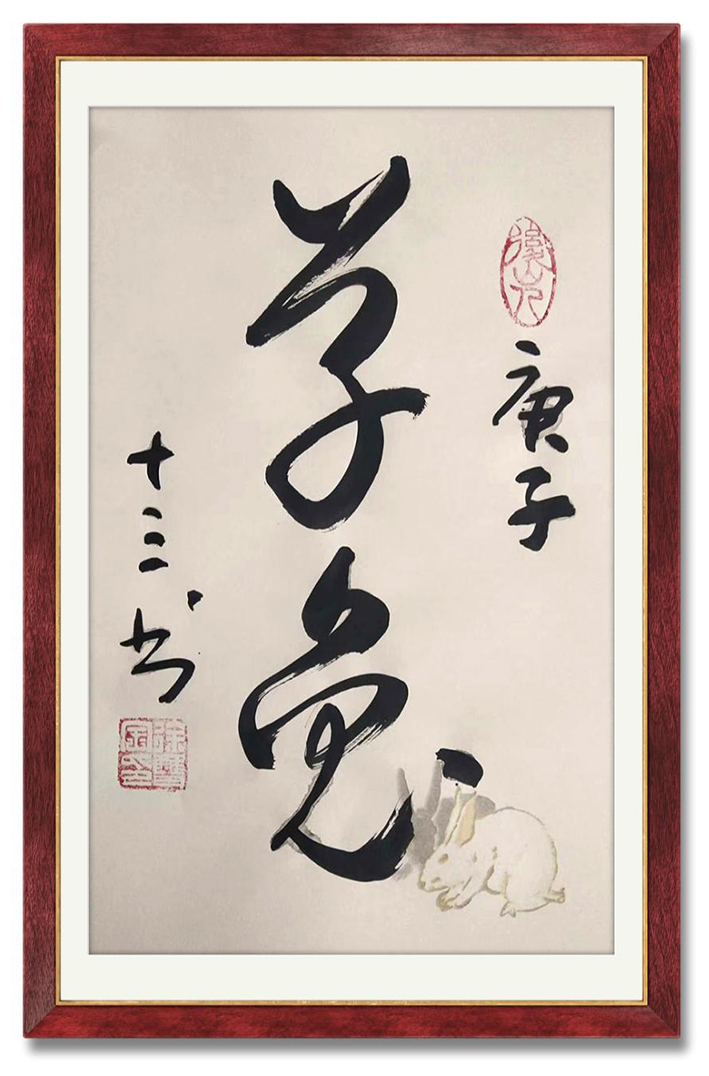 庚子
草兔
十三书